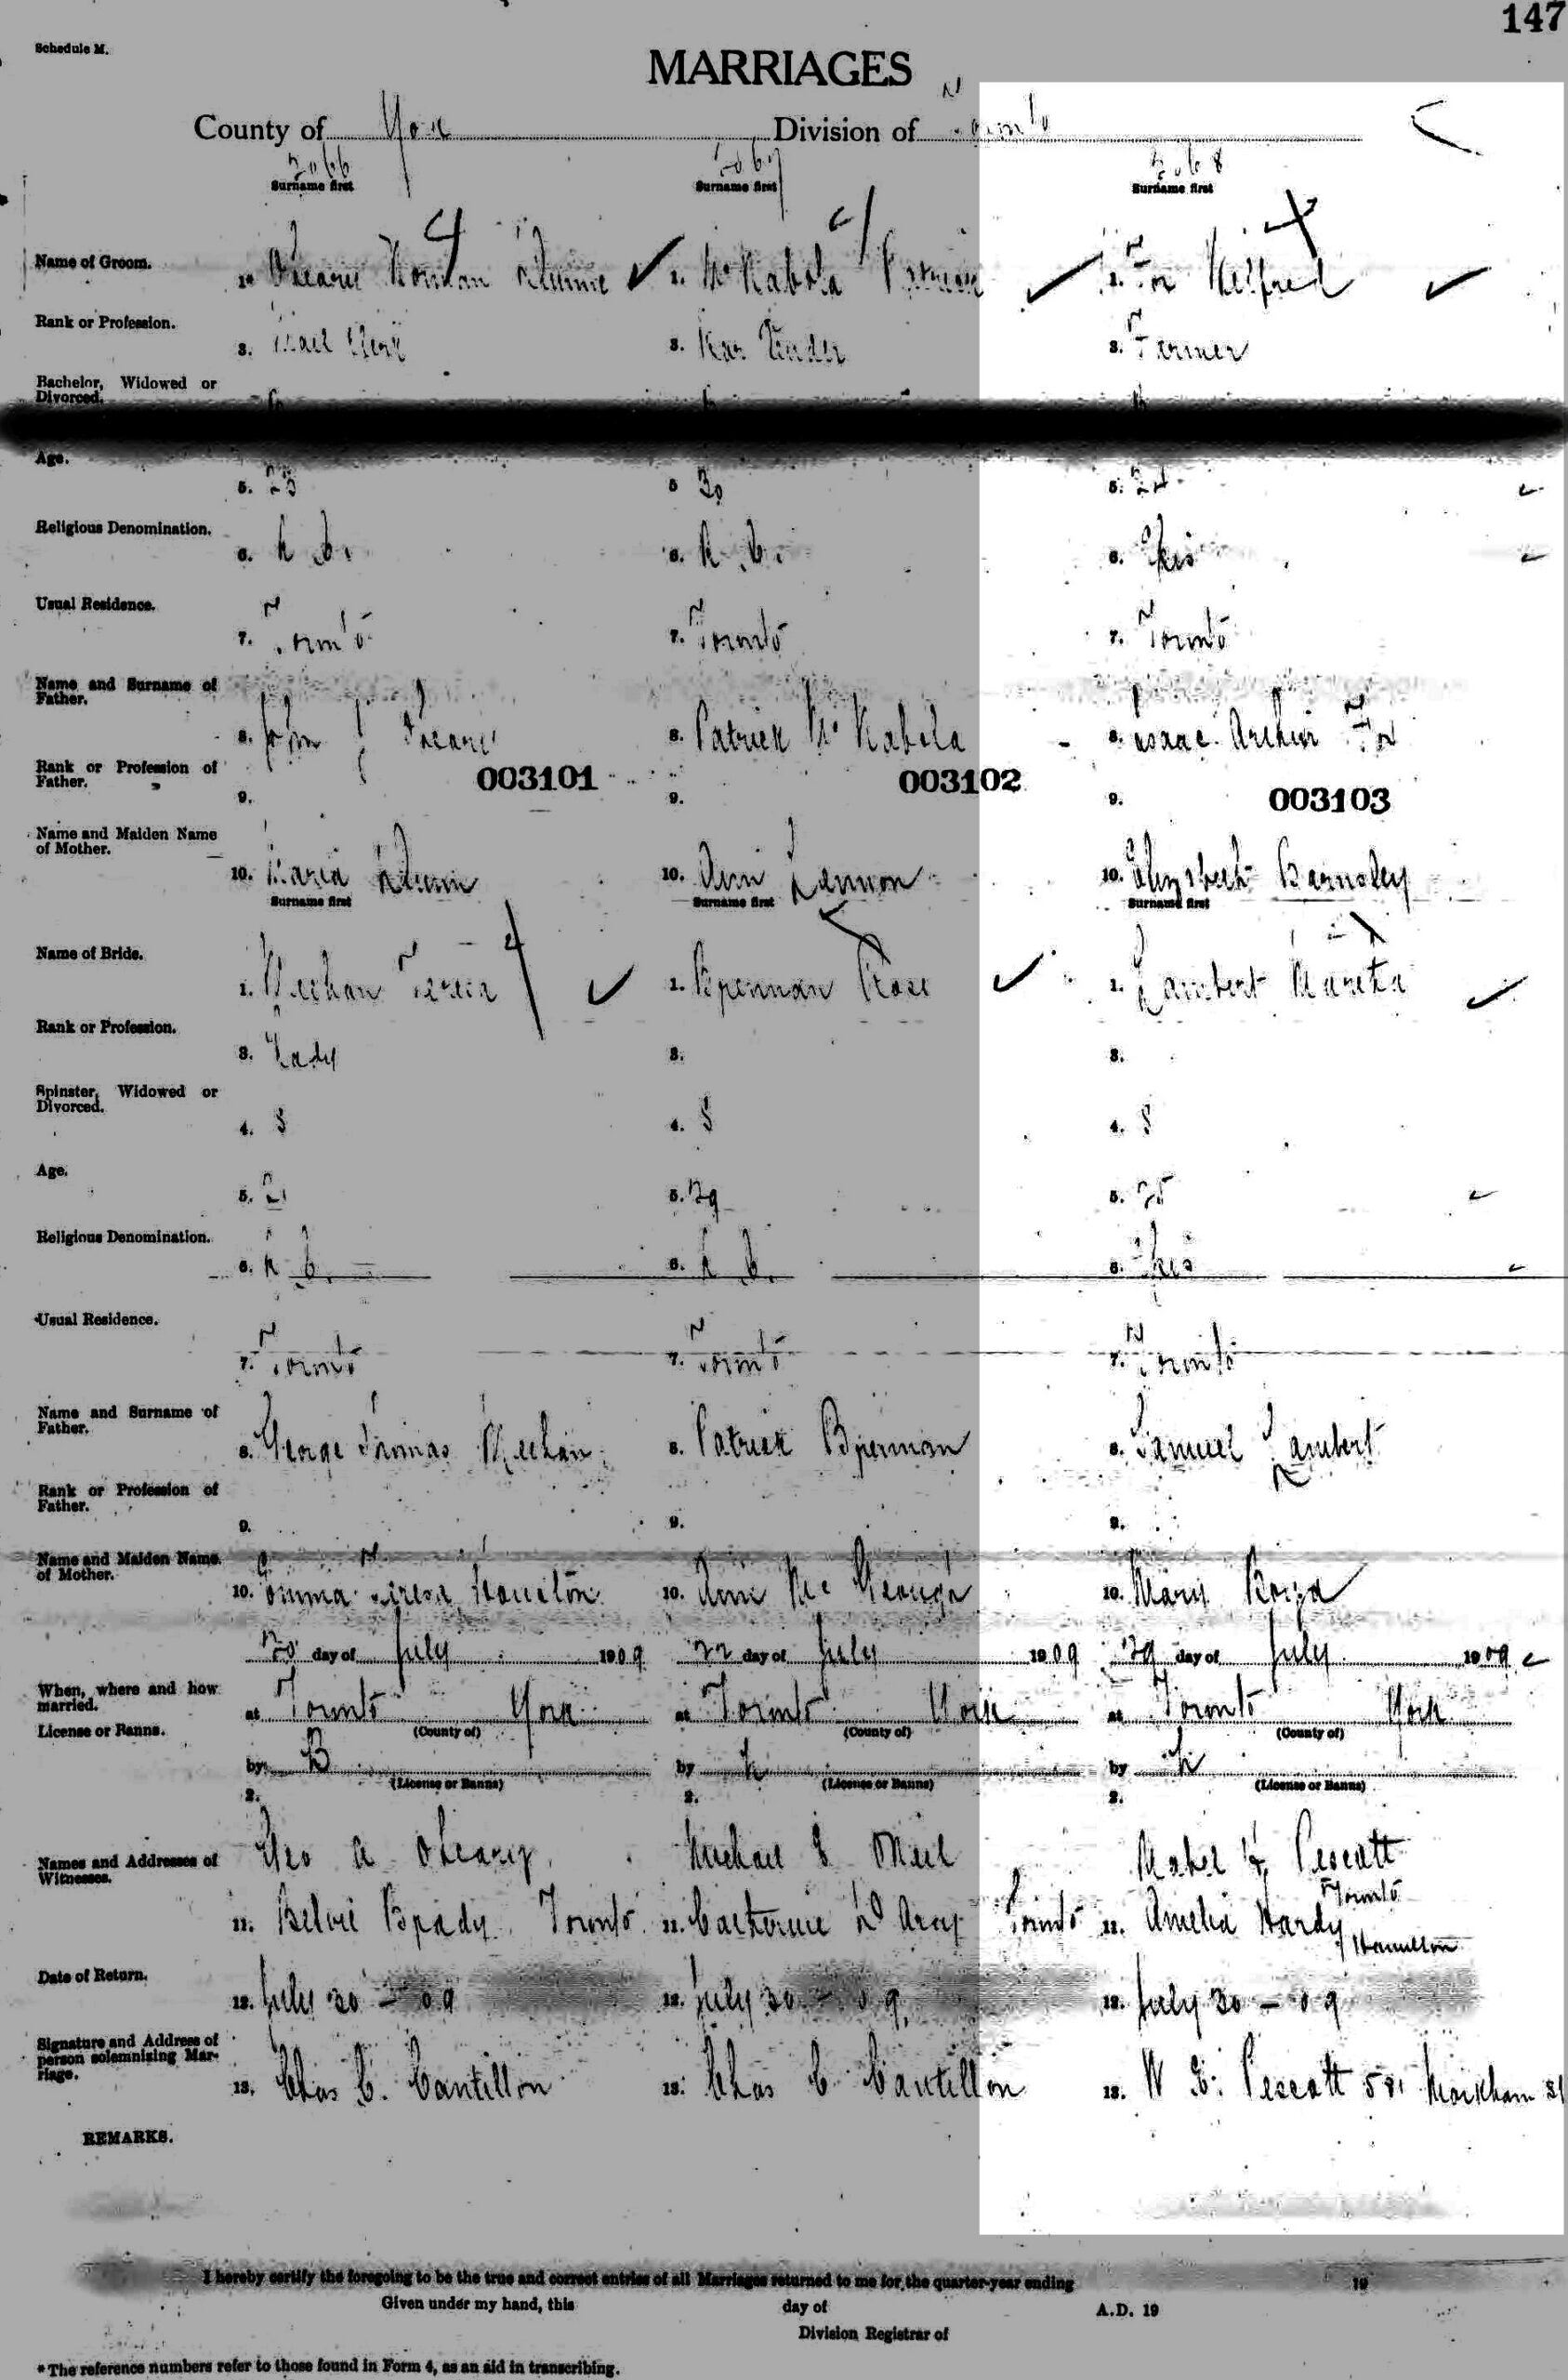 147
Schedule M.
MARRIAGES
County of York Division of Toronto
2066 2067 2068
Surname first Surname first Surname first
Name of Groom. 1. Kendon 1. Patrick 1. Fox Wilfred
Rank or Profession. 3. Clerk 3. Bar Tender 3. Farmer
Bachelor, Widowed or Divorced. B B B
Age. 5. 23 5 30 5. 24
Religious Denomination. 6. R C. 6. R. C. 6. Pres
Usual Residence. 7. Toronto 7. Toronto 7. Toronto
Name and Surname of Father. 8. John J 8. Patrick 8. Isaac Arthur Fox
Rank or Profession of Father. 9. 003101 9. 003102 9. 003103
Name and Maiden Name of Mother. 10. Maria 10. Ann Lennon 10. Elizabeth Barnsley
Surname first Surname first Surname first
Name of Bride. 1. Meehan Teresa 1. Brennan Rose 1. Lambert Martha
Rank or Profession. 3. Lady 3. 3.
Spinster, Widowed or Divorced. 4. S 4. S 4. S
Age. 5. 21 5. 29 5. 25
Religious Denomination. 6. R C. 6. R C. 6. Pres
Usual Residence. 7. Toronto 7. Toronto 7. Toronto
Name and Surname of Father. 8. George Thomas Meehan 8. Patrick Brennan 8. Samuel Lambert
Rank or Profession of Father. 9. 9. 9.
Name and Maiden Name of Mother. 10. Emma Teresa 10. Ann Mc 10. Mary
20 day of July 1909 22 day of July 1909 29 day of July 1909
When, where and how married. at Toronto York at Toronto York at Toronto York
(County of) (County of) (County of)
License or Banns. by B by L by L
(License or Banns) (License or Banns) (License or Banns)
2. 2. 2.
Names and Addresses of Witnesses. Geo A OLeary Michael J ONeil Mabel F. Pescott
Toronto
11. Brady Toronto 11. Catherine D Arcy Toronto 11. Amelia Hardy
Hamilton
Date of Return. 12. July 30 - 09 12. July 30 - 09 12. July 30 - 09
Signature and Address of person solemnizing Marriage. 13. Chas C. Cantillon 13. Chas C Cantillon 13. W E. Pescott 581 Markham St
REMARKS.
I hereby certify the foregoing to be the true and correct entries of all Marriages returned to me for the quarter-year ending 19
Given under my hand, this day of A.D. 19
Division Registrar of
*The reference numbers refer to those found in Form 4, as an aid in transcribing.